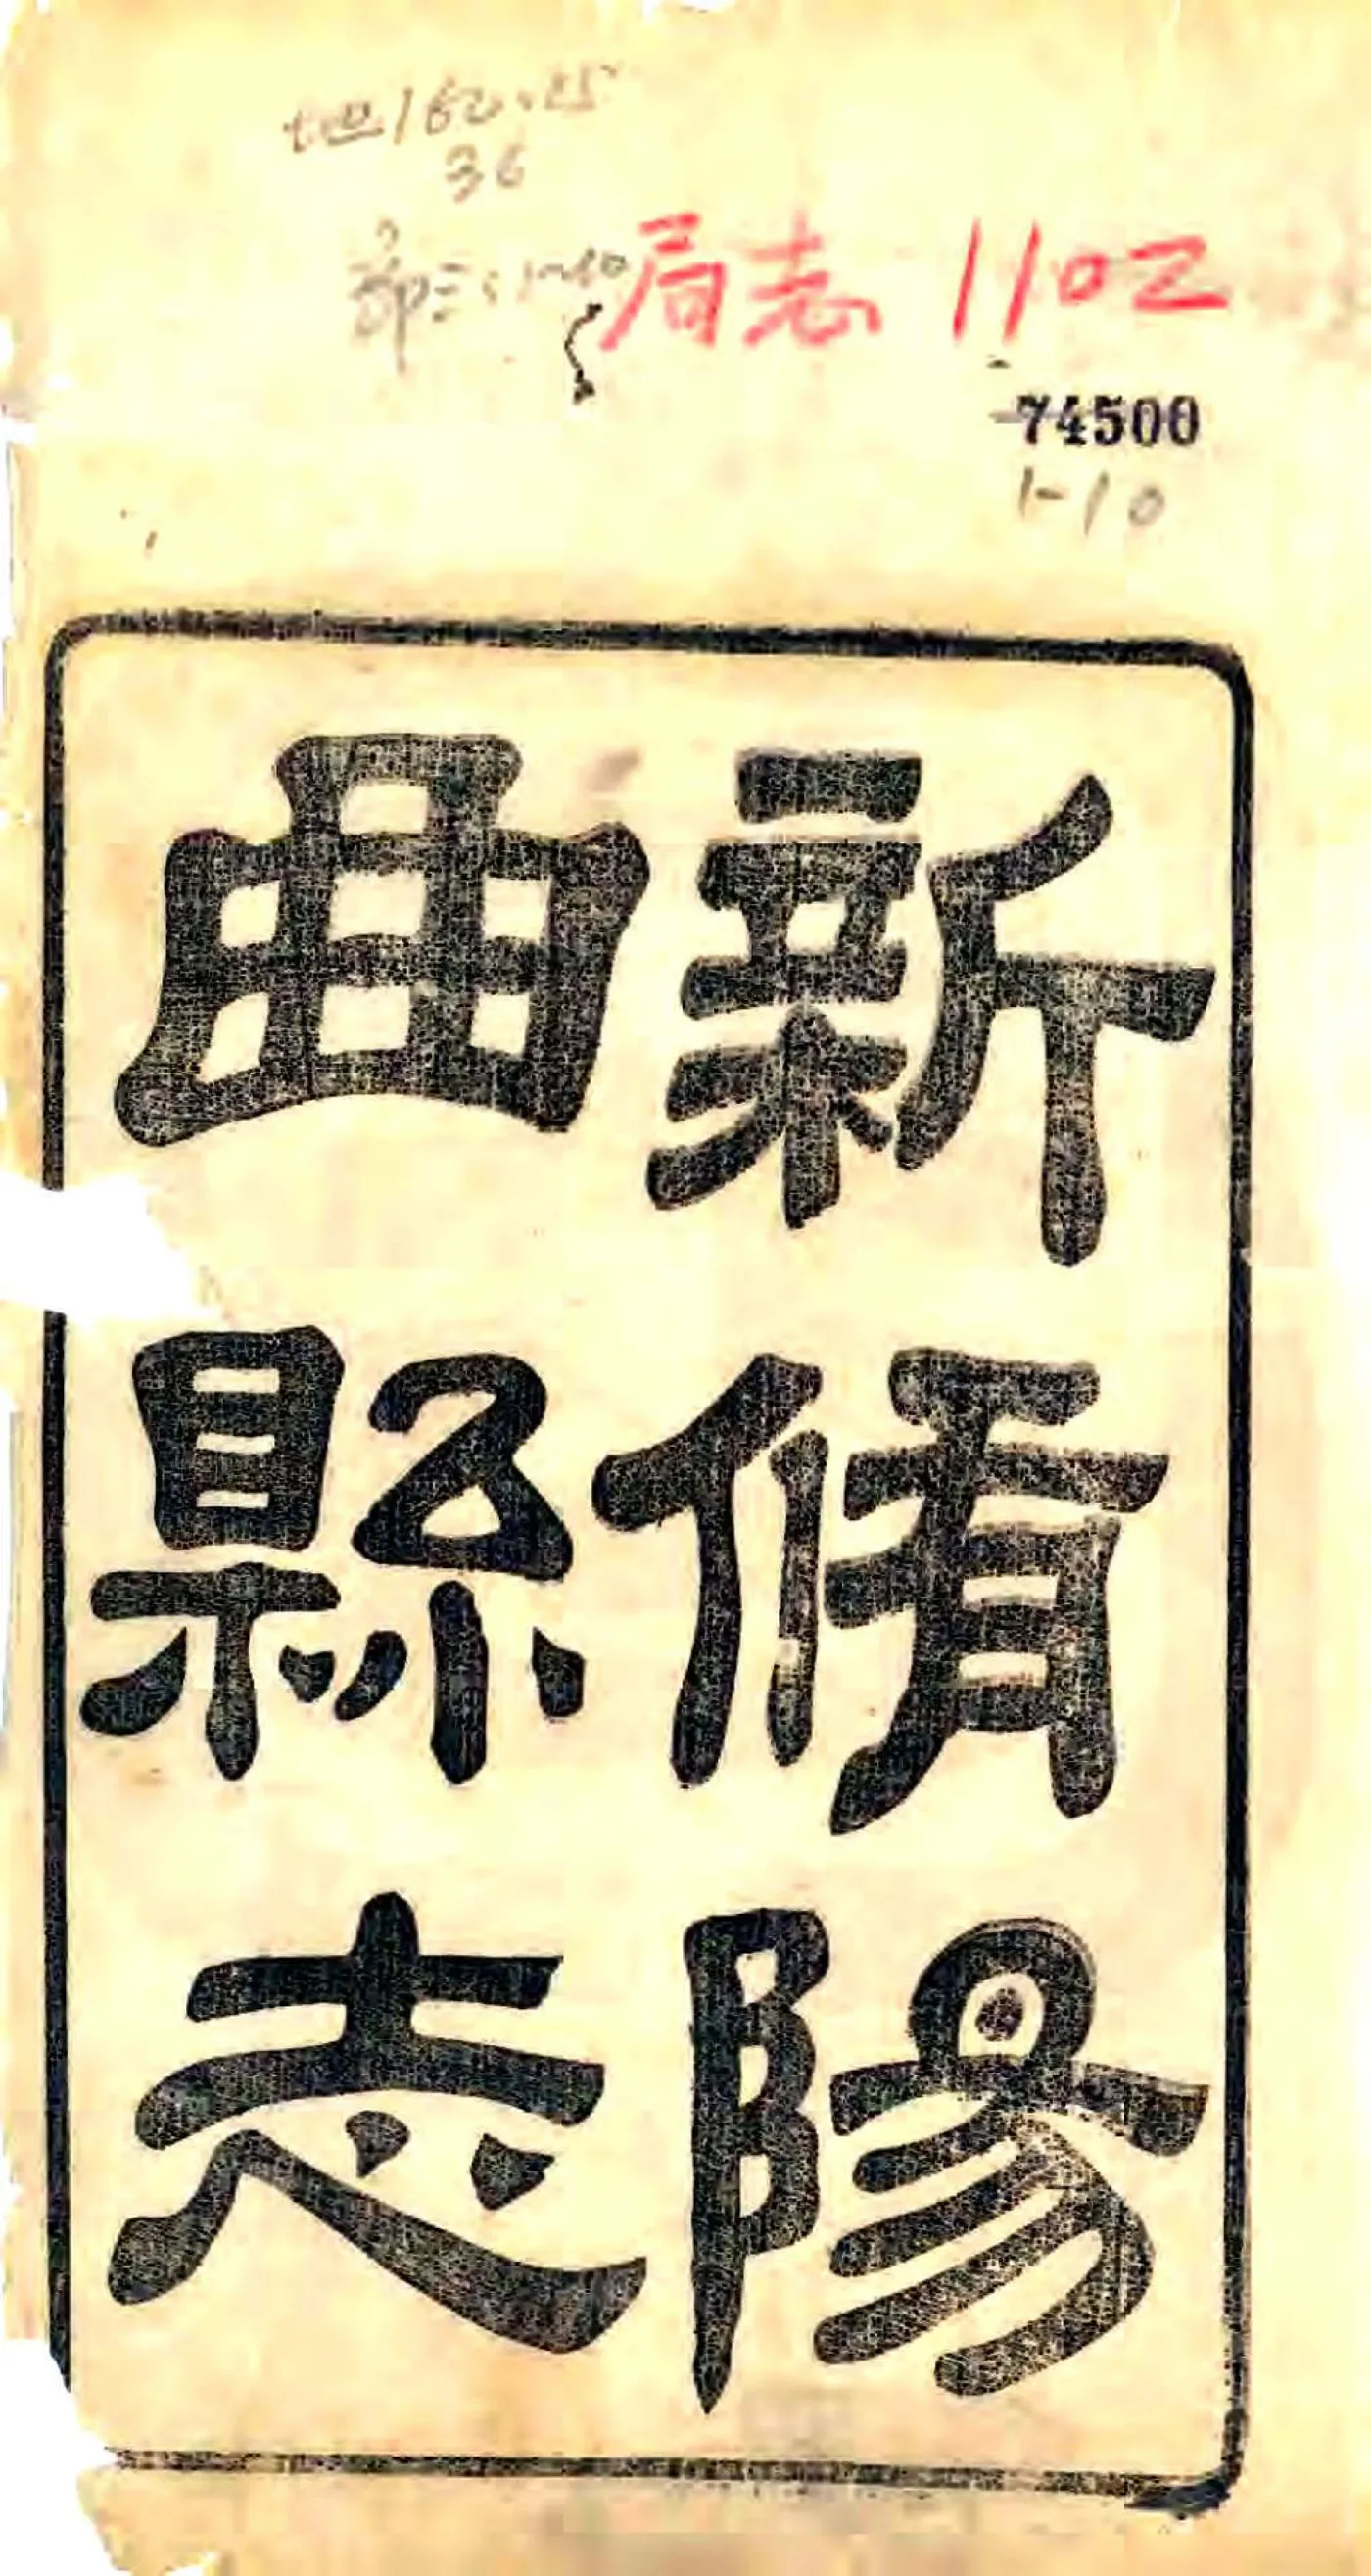 地162.25
36
局志 1102
74500
1-10
新脩陽
曲縣志